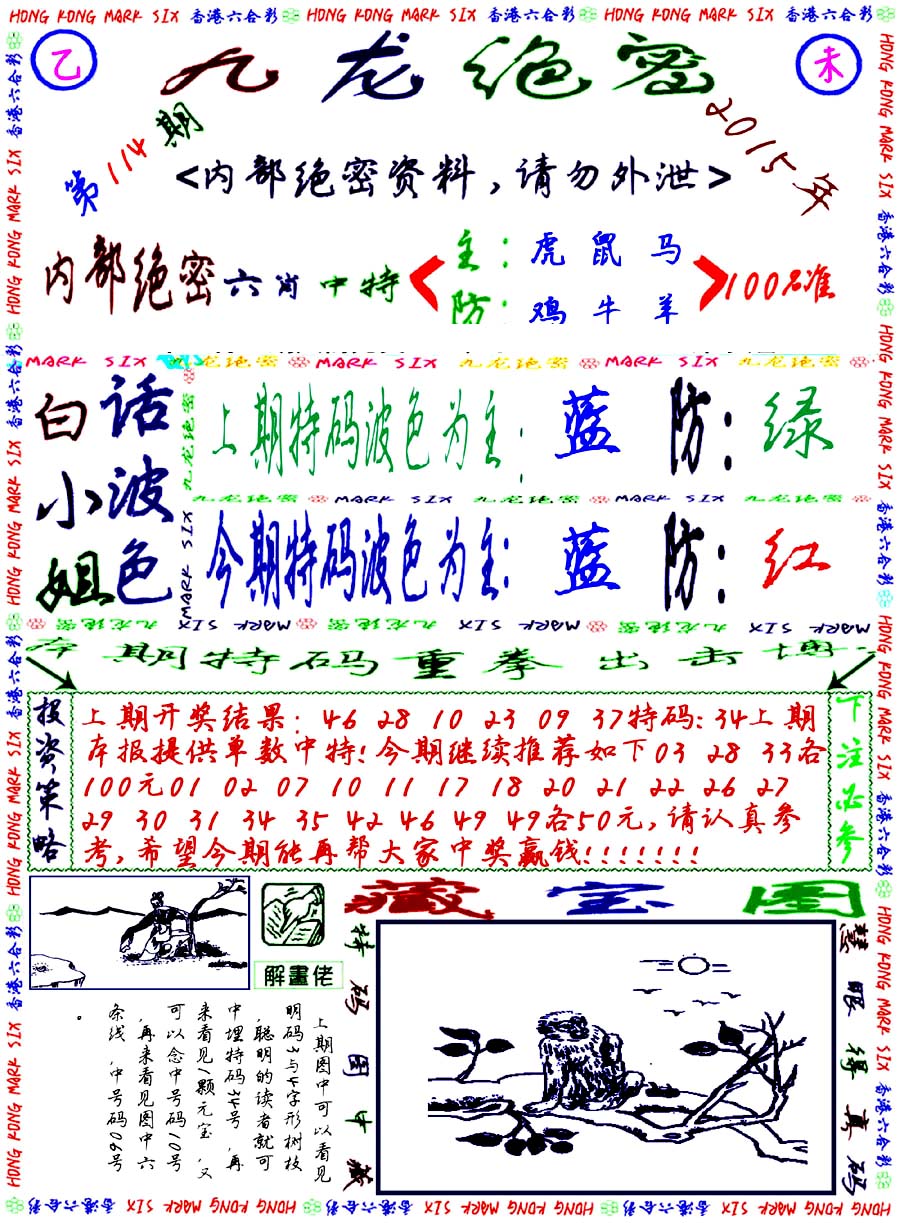 HONG KONG MARK SIX 香港六合彩 HONG KONG MARK SIX 香港六合彩 HONG KONG MARK SIX 香港六合彩
乙
九龙绝密
未
第114期
2015年
<内部绝密资料,请勿外泄>
内部绝密六肖中特
主:虎 鼠 马
防:鸡 牛 羊
100%准
MARK SIX 九龙绝密 MARK SIX 九龙绝密 MARK SIX 九龙绝密
白话
小波
姐色
上期特码波色为主:蓝 防:绿
九龙绝密 MARK SIX 九龙绝密 MARK SIX 九龙绝密
今期特码波色为主:蓝 防:红
MARK SIX 九龙绝密 MARK SIX 九龙绝密 MARK SIX 九龙绝密
本期特码重拳出击博
投资策略
上期开奖结果:46 28 10 23 09 37特码:34上期
本报提供单数中特!今期继续推荐如下03 28 33各
100元01 02 07 10 11 17 18 20 21 22 26 27
29 30 31 34 35 42 46 49 49各50元,请认真参
考,希望今期能再帮大家中奖赢钱!!!!!!!
下注必参
藏宝图
解畫佬
特码图中藏
慧眼得真码
上期图中可以看见
明码3与4字形树枝
,聪明的读者就可
中埋特码34号,再
来看见1颗元宝,又
可以念中号码10号
,再来看见图中六
条线,中号码06号
。
HONG KONG MARK SIX 香港六合彩 HONG KONG MARK SIX 香港六合彩 HONG KONG MARK SIX 香港六合彩